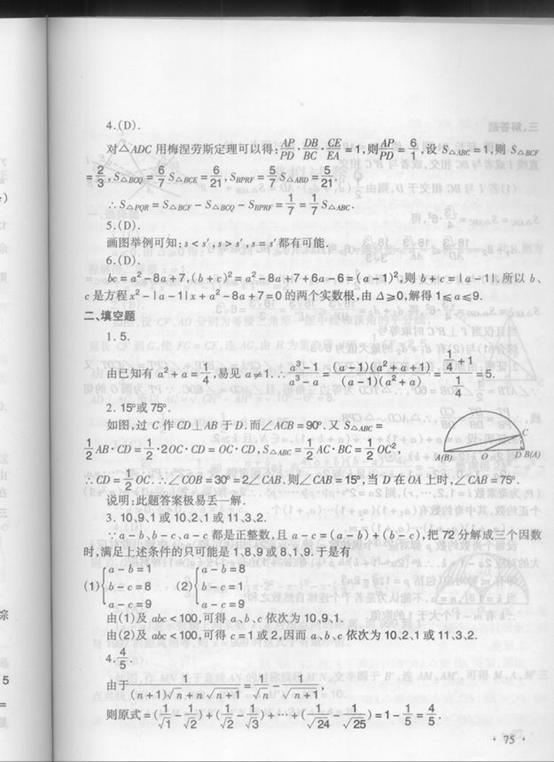 4.(D).
对△ADC 用梅涅劳斯定理可以得:AP/PD·DB/BC·CE/EA=1,则AP/PD=6/1,设 S△ABC=1,则 S△BCF
=2/3,S△BCQ=6/7 S△BCE=6/21,SBPRF=5/7 S△ABD=5/21.
∴S△PQR=S△BCF-S△BCQ-SBPRF=1/7=1/7 S△ABC.
5.(D).
画图举例可知:s<s′,s>s′,s=s′都有可能.
6.(D).
bc=a²-8a+7,(b+c)²=a²-8a+7+6a-6=(a-1)²,则 b+c=|a-1|.所以 b、
c是方程x²-|a-1|x+a²-8a+7=0的两个实数根,由 Δ≥0,解得1≤a≤9.
二、填空题
1.5.
由已知有 a²+a=1/4.易见 a≠1.∴(a³-1)/(a³-a)=(a-1)(a²+a+1)/((a-1)(a²+a))=(1/4+1)/(1/4)=5.
2.15°或75°.
如图,过 C 作 CD⊥AB 于 D.而∠ACB=90°.又 S△ABC=
1/2 AB·CD=1/2·2OC·CD=OC·CD,S△ABC=1/2 AC·BC=1/2 OC²,
C
A(B) O D B(A)
∴CD=1/2 OC.∴∠COB=30°=2∠CAB.则∠CAB=15°,当 D 在 OA 上时,∠CAB=75°.
说明:此题答案极易丢一解.
3.10、9、1 或 10、2、1 或 11、3、2.
∵a-b、b-c、a-c 都是正整数,且 a-c=(a-b)+(b-c),把 72 分解成三个因数
时,满足上述条件的只可能是 1、8、9 或 8、1、9.于是有
(1){a-b=1 b-c=8 a-c=9 (2){a-b=8 b-c=1 a-c=9
由(1)及 abc<100,可得 a、b、c 依次为 10、9、1.
由(2)及 abc<100,可得 c=1 或 2,因而 a、b、c 依次为 10、2、1 或 11、3、2.
4.4/5.
由于 1/((n+1)√n+n√(n+1))=1/√n-1/√(n+1),
则原式=(1/√1-1/√2)+(1/√2-1/√3)+⋯+(1/√24-1/√25)=1-1/5=4/5.
·75·